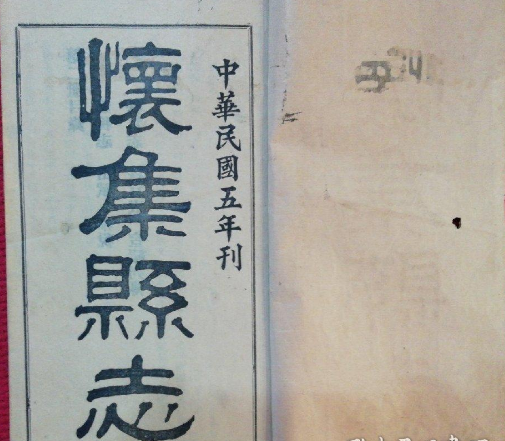 中華民國五年刊
懷集縣志